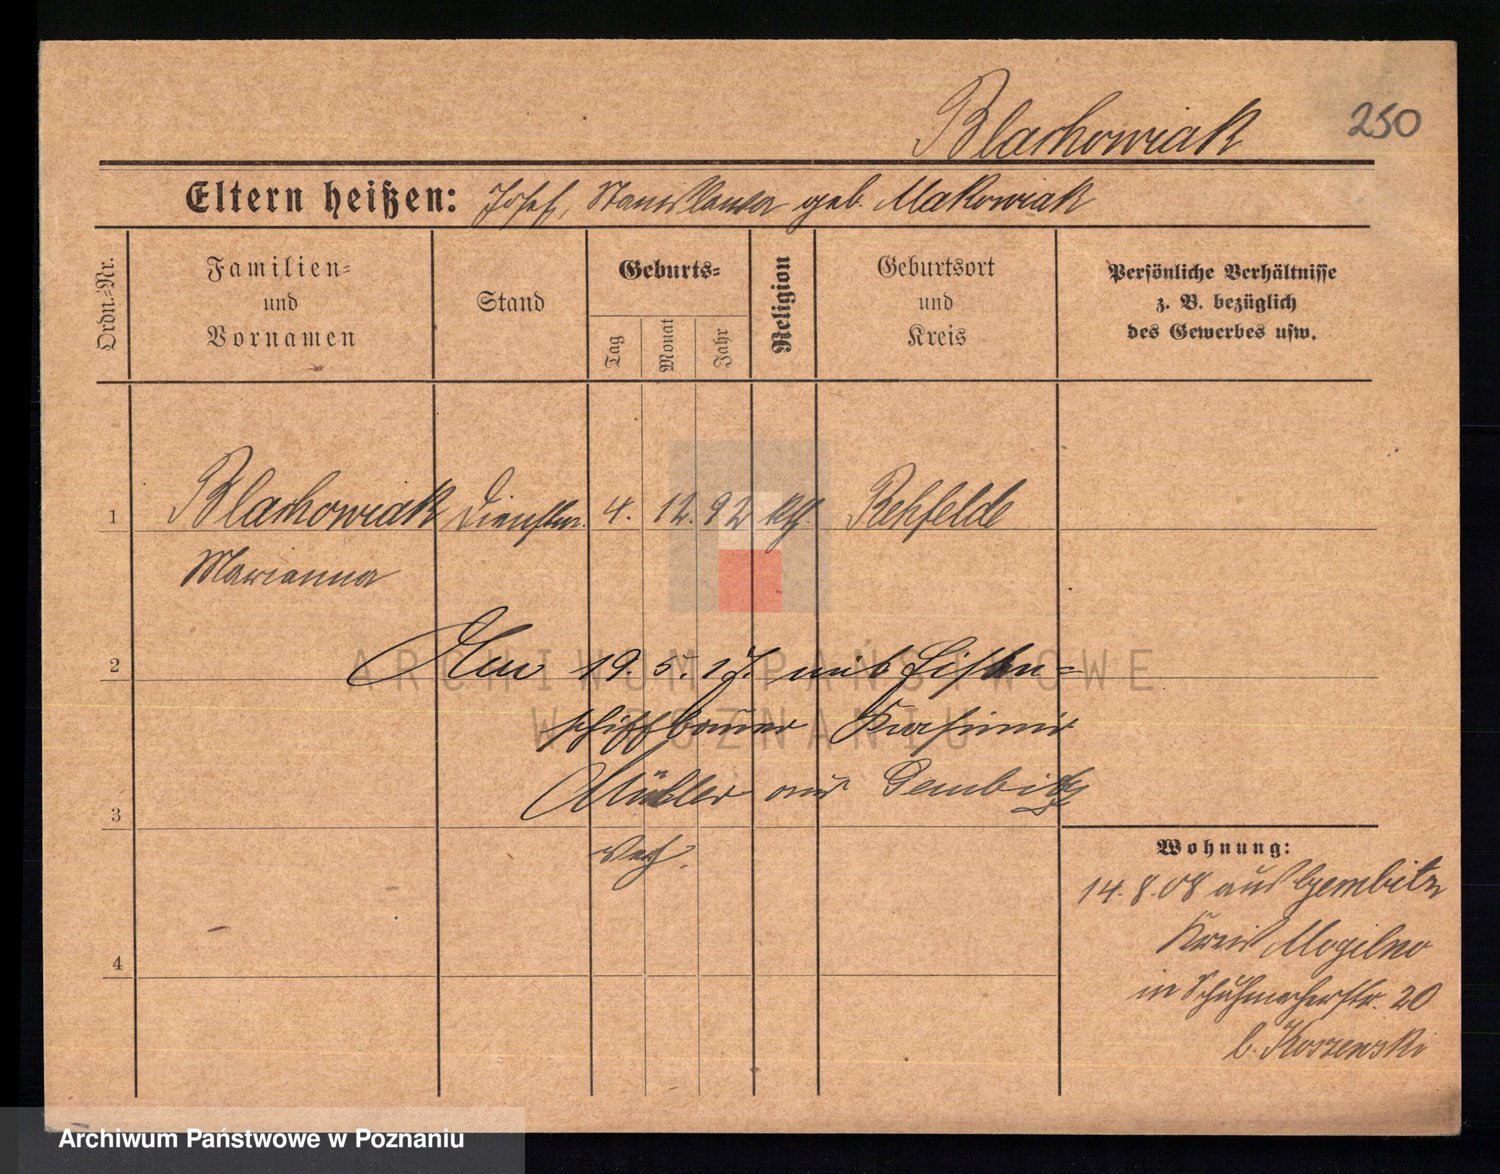 Blachowiak 250
Eltern heißen: Josef, Stanislawa geb. Makowiak
Ordn.-Nr.
Familien-
und
Vornamen
Stand
Geburts-
Tag
Monat
Jahr
Religion
Geburtsort
und
Kreis
Persönliche Verhältnisse
z. B. bezüglich
des Gewerbes usw.
1 Blachowiak Dienstm. 4. 12. 92 kth. Rehfelde
Marianna
2 Am 19. 5. 17. mit
schiffbauer Kasimir
Müller aus Gembitz
3
verh.
4
Wohnung:
14. 8. 08 aus Gembitz
Kreis Mogilno
in Schuhmacherstr. 20
b. Koszewski
ARCHIWUM PAŃSTWOWE
W POZNANIU
Archiwum Państwowe w Poznaniu